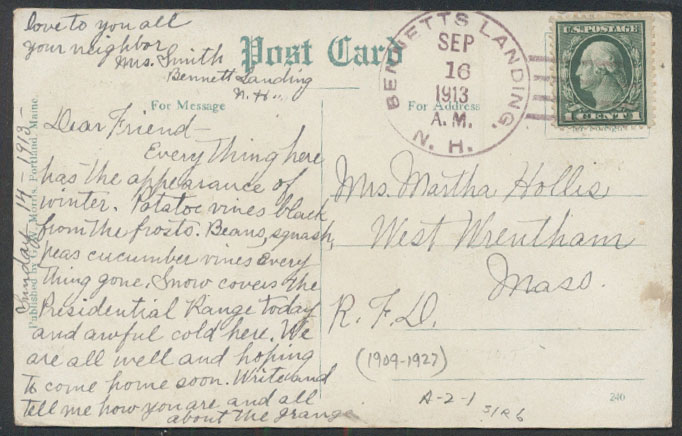 Post Card
For Message
For Address
Dear Friend -
Every thing here
has the appearance of
winter. Potatoe vines black
from the frosts. Beans, squash,
peas cucumber vines every
thing gone. Snow covers the
Presidential Range today
and awful cold here. We
are all well and hoping
to come home soon. Write and
tell me how you are and all
about the Grange
love to you all
your neighbor
Mrs. Smith
Bennett Landing
N.H.
Sunday 14-1913-
Published by G. W. Morris, Portland, Maine.
BENNETTS LANDING.
SEP
16
1913
A.M.
N.H.
U.S. POSTAGE
1 CENT 1
Mrs. Martha Hollis
West Wrentham
Mass.
R.F.D.
(1909-1927)
A-2-1
240